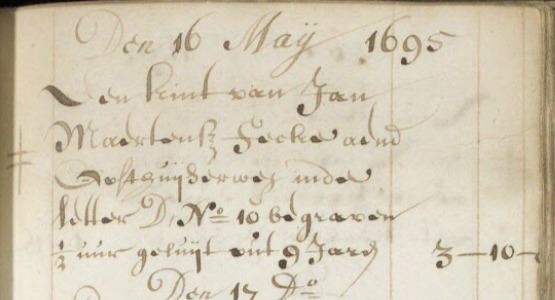 Den 16 Maÿ 1695
Een kint van Jan
Maertensz Fecke aend
Oosthuÿserweg inde
letter D, No 10 begraven
½ uur geluÿt out 9 Jare 3-10-
Den 17 Do